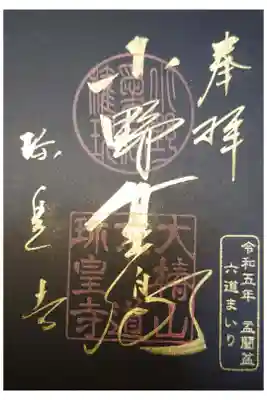 奉拝
小野篁卿
珍皇寺
大椿山
六道
珎皇寺
令和五年 盂蘭盆
六道まいり